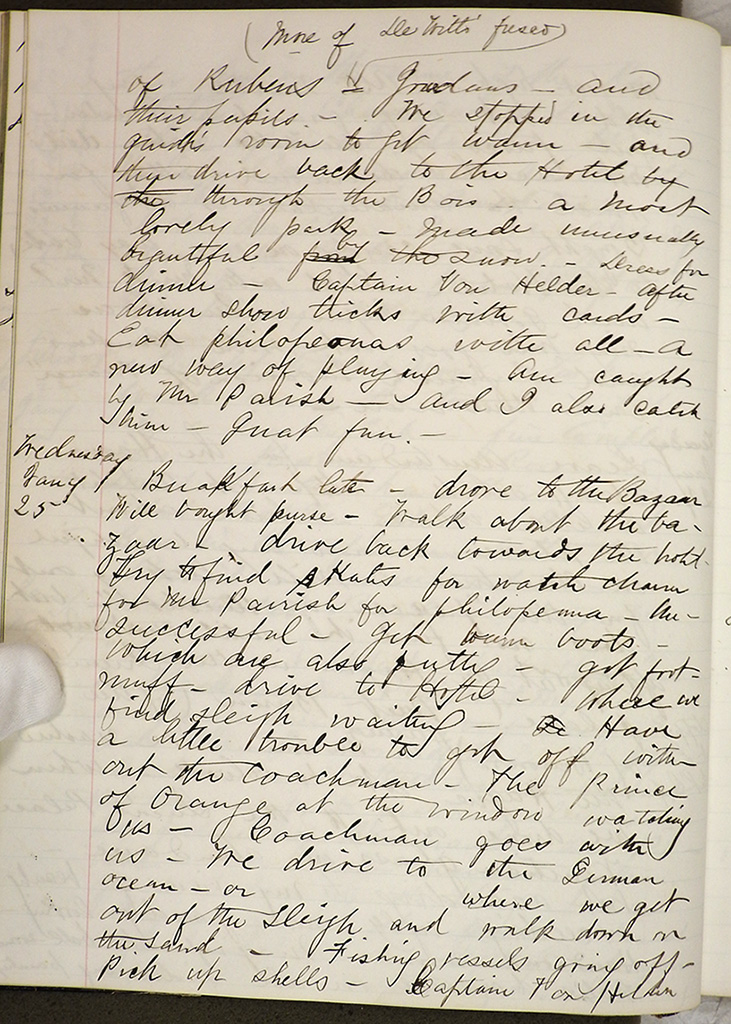 (More of De Witts' fused)
of Rubens & Jordans - and
their pupils. - We stopped in the
guide's room to get warm - and
then drive back to the Hotel by
the through the Bois - a most
lovely park - made unusually
beautiful by the snow. - Dress for
dinner - Captain Von Helder - after
dinner show tricks with cards -
Eat philopeonas with all - a
new way of playing - Am caught
by Mr Parish - and I also catch
him - Great fun. -
Wednesday
Jany
25
Breakfast late - drove to the Bazaar
Will bought purse - Walk about the ba-
zaar - drive back towards the hotel.
Try to find skates for watch charm
for Mr Parrish for philopenna - Un-
successful - get warm boots -
which are also pretty - get foot-
muff - drive to Hotel - where we
find sleigh waiting - Have
a little trouble to get off with-
out the Coachman - The Prince
of Orange at the window watching
us - Coachman goes with
us - We drive to the German
ocean - or where we get
out of the sleigh and walk down on
the sand - Fishing vessels going off -
Pick up shells - Captain Von Heldin